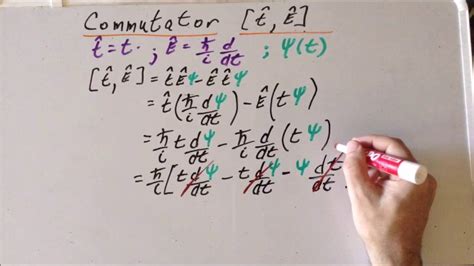 Commutator [t̂, Ê]
t̂ = t· ; Ê = ħ/i d/dt ; ψ(t)
[t̂, Ê] = t̂Êψ - Êt̂ψ
= t̂(ħ/i dψ/dt) - Ê(tψ)
= ħ/i t dψ/dt - ħ/i d/dt (tψ)
= ħ/i [t dψ/dt - t dψ/dt - ψ dt/dt